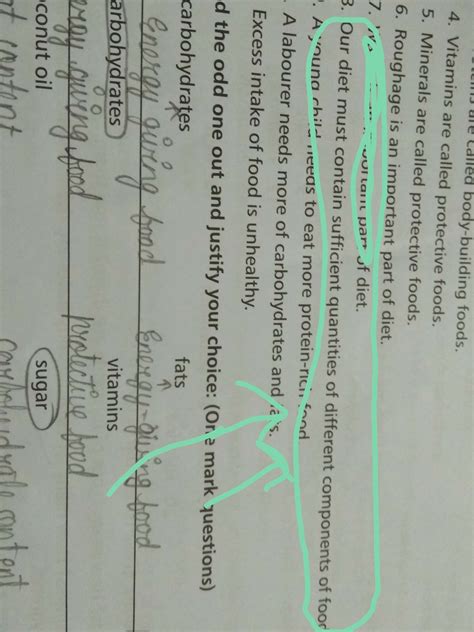 are called body-building foods.
4. Vitamins are called protective foods.
5. Minerals are called protective foods.
6. Roughage is an important part of diet.
7. important part of diet.
3. Our diet must contain sufficient quantities of different components of food
. A young child needs to eat more protein-rich food
. A labourer needs more of carbohydrates and fats.
Excess intake of food is unhealthy.
d the odd one out and justify your choice: (One mark questions)
carbohydrates fats
Energy giving food Energy-giving food
arbohydrates vitamins
ergy giving food protective food
conut oil sugar
content carbohydrate content